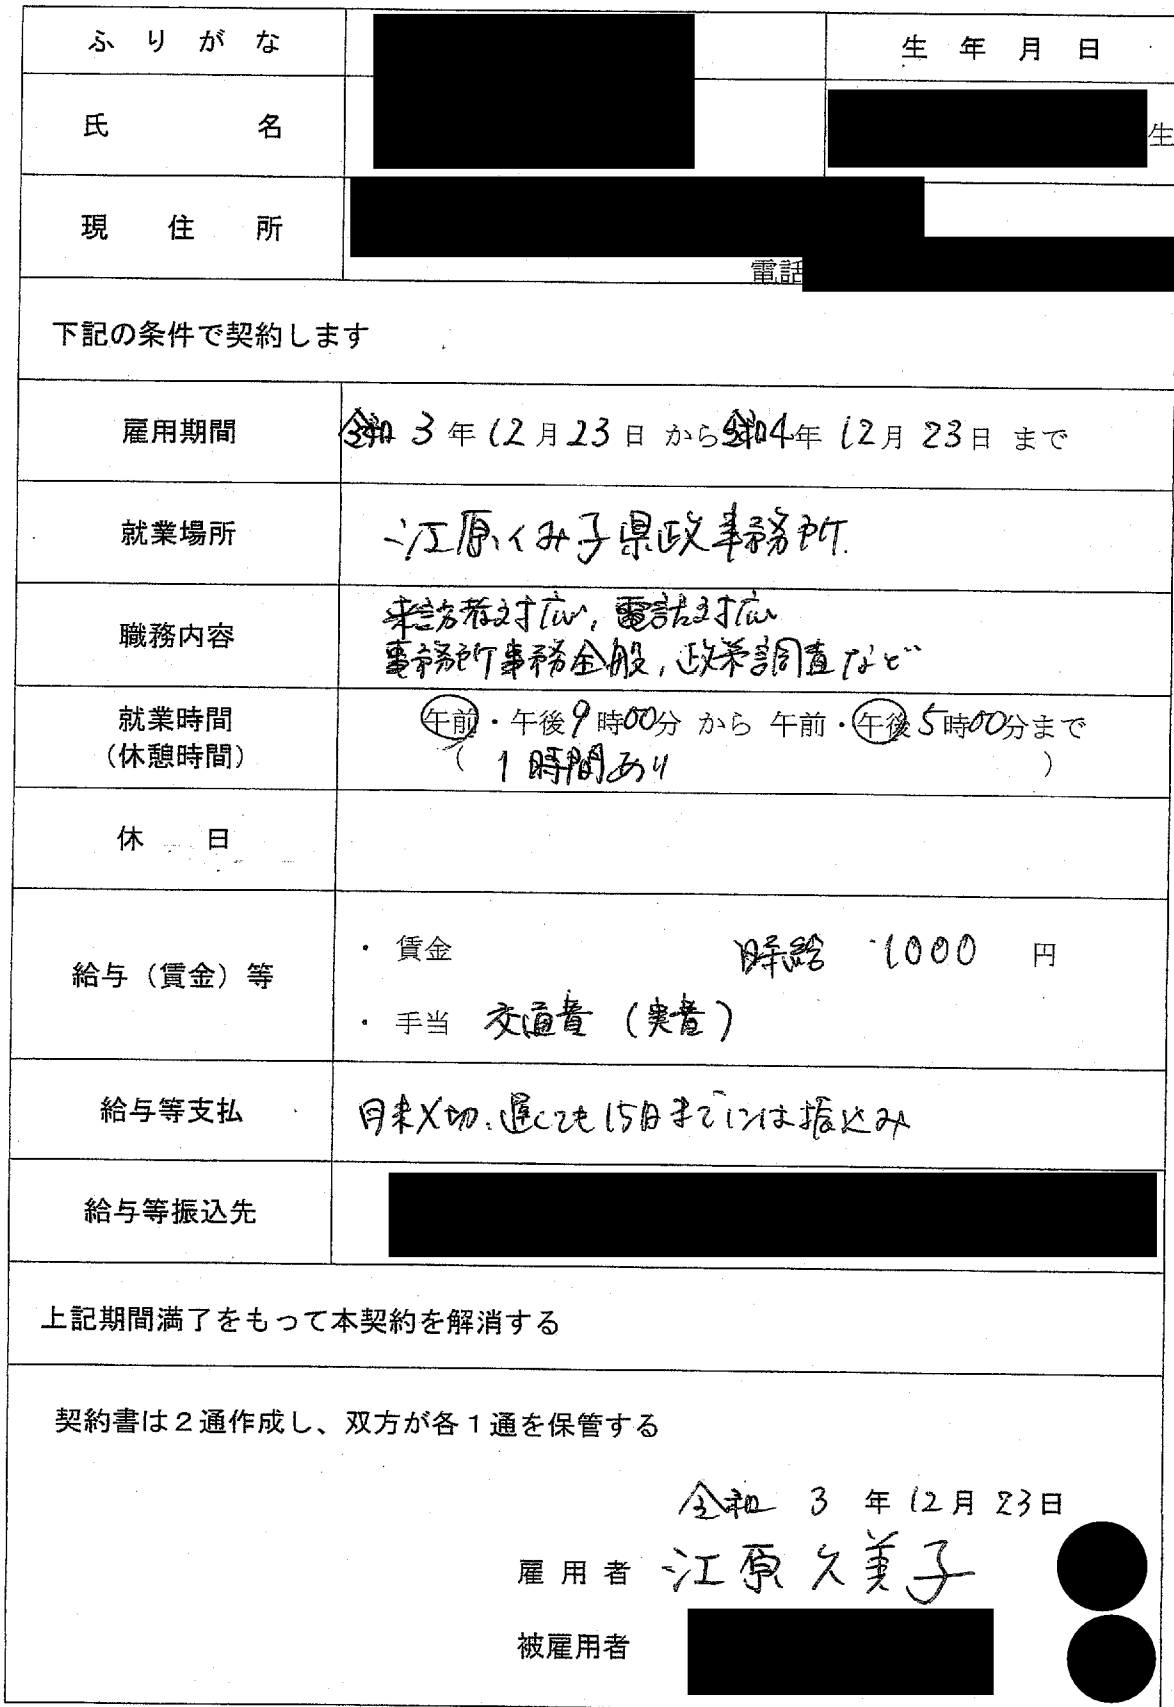 ふりがな
生年月日
氏名
生
現住所
電話
下記の条件で契約します
雇用期間 令和3年12月23日から令和4年12月23日まで
就業場所 江原くみ子県政事務所
職務内容 来訪者対応,電話対応
事務所事務全般,政策調査など
就業時間 午前・午後9時00分から午前・午後5時00分まで
(休憩時間) (1時間あり)
休日
給与(賃金)等
・賃金 時給 1000円
・手当 交通費(実費)
給与等支払 月末〆切、遅くても15日までには振込み
給与等振込先
上記期間満了をもって本契約を解消する
契約書は2通作成し、双方が各1通を保管する
令和3年12月23日
雇用者 江原久美子
被雇用者